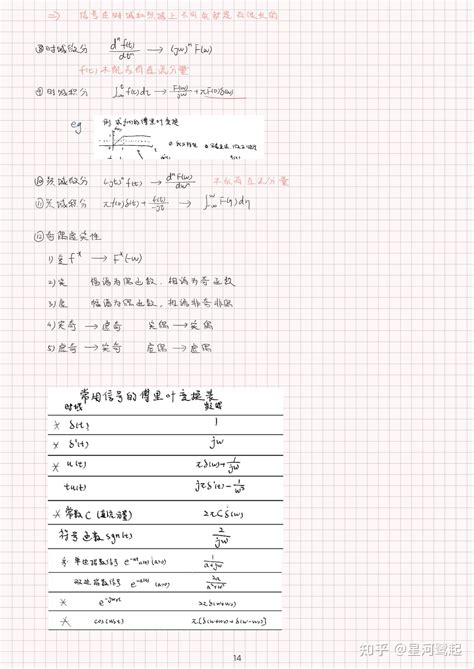 ⇒ 信号在时域和频域上不可能都是有限长的
⑧时域微分 dⁿf(t)/dtⁿ → (jw)ⁿ F(w)
f(t)不能有直流分量
⑨时域积分 ∫ f(t)dt → F(w)/jw + πF(0)δ(w)
eg
⑩频域微分 (-jt)ⁿ f(t) → dⁿF(w)/dwⁿ 不能有直流分量
⑪频域积分 πf(0)δ(t) + f(t)/-jt → ∫_{-∞}^{w} F(η)dη
⑫奇偶虚实性
1) f* → F*(-w)
2) 实 幅谱为偶函数，相谱为奇函数
3) 虚 幅谱为偶函数，相谱非奇非偶
4) 实奇 → 虚奇 实偶 → 实偶
5) 虚奇 → 实奇 虚偶 → 虚偶
常用信号的傅里叶变换表
时域 频域
* δ(t) 1
* δ'(t) jw
* u(t) πδ(w)+1/jw
tu(t) jπδ'(w)-1/w²
* 常数C (直流分量) 2πCδ(w)
符号函数sgn(t) 2/jw
* 单边指数信号 e^{-at}u(t) (a>0) 1/(a+jw)
双边指数信号 e^{-a|t|} (a>0) 2a/(a²+w²)
* e^{-jw₀t} 2πδ(w+w₀)
* cos(w₀t) π[δ(w+w₀)+δ(w-w₀)]
14
知乎 @星河鹭起